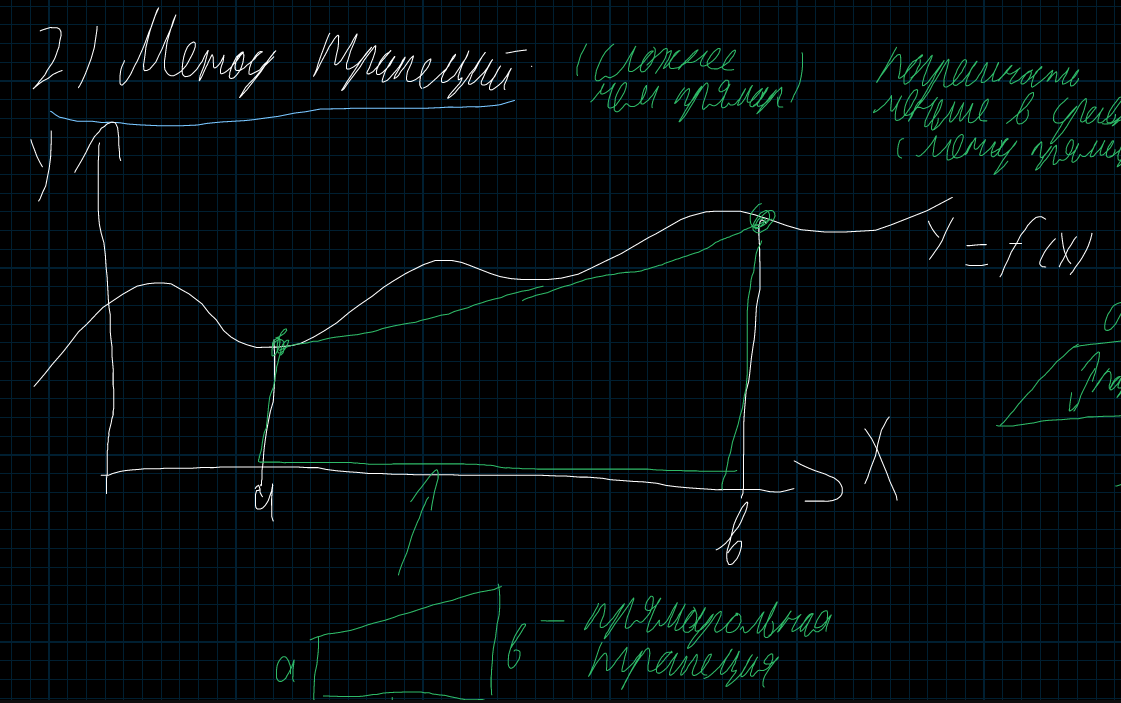 2) Метод трапеций
(сложнее
чем прямоуг)
погрешность
меньше в
(метод
Y
Y = f(x)
a
b
X
a
b — прямоугольная
трапеция